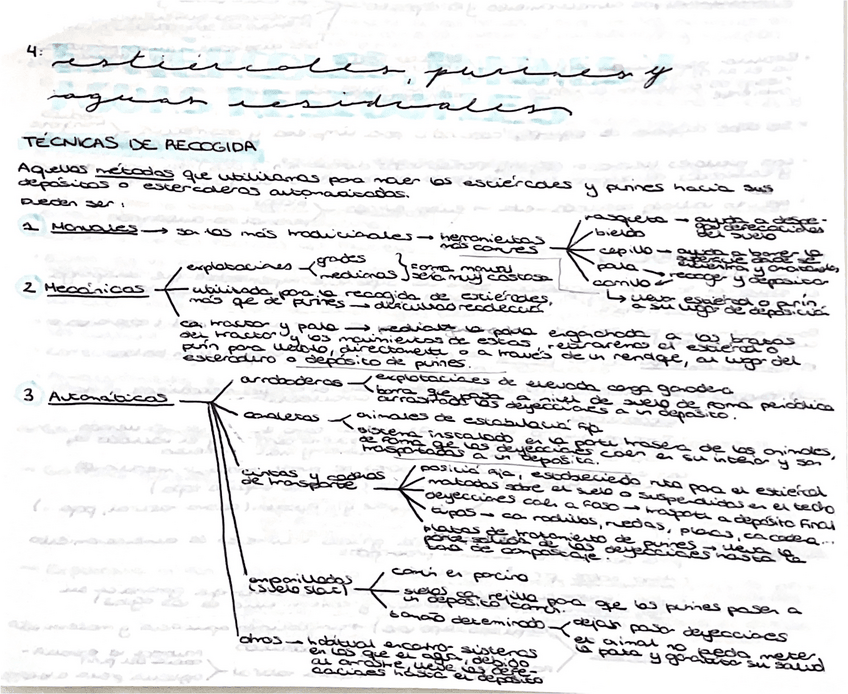 4:
estiércoles, purines y
aguas residuales
TÉCNICAS DE RECOGIDA
Aquellos métodos que utilizamos para mover los estiércoles y purines hacia sus
depósitos o estercoleros automatizados.
Pueden ser:
1 Manuales → son los más tradicionales → herramientas
más comunes
rasqueta → ayuda a despe-
gar deyecciones
del suelo
bieldo
cepillo → ayuda a barrer la
pala → recoger y depositar
carrillo
↳ lleva estiércol o purín
a su lugar de deposición
2 Mecánicas
explotaciones
grandes
medianas
forma manual
sería muy costosa
utilizada para la recogida de estiércoles,
más que de purines →
con tractor y pala → mediante la pala enganchada a los brazos
del tractor y los movimientos de estos, retiraremos el estiércol o
purín para llevarlo, directamente o a través de un remolque, al lugar del
estercolero o depósito de purines.
3 Automáticos
arrobaderas
explotaciones de elevada carga ganadera
barra que pasa a nivel de suelo de forma periódica
arrastrando las deyecciones a un depósito.
canaletas
animales de estabulación fija
sistema instalado en la parte trasera de los animales,
de forma que las deyecciones caen en su interior y son
trasportadas a un depósito.
cintas y cadenas
de transporte
posición fija, estableciendo ruta para el estiércol
montadas sobre el suelo o suspendidas en el techo
deyecciones caen a foso → trasporte a depósito final
tipos → con rodillos, ruedas, placas, con cadena...
plantas de tratamiento de purines → lleva la
parte sólida de las deyecciones hasta la
zona de compostaje.
emparrillados
(suelo slat)
común en porcino
suelos con rejilla para que los purines pasen a
un depósito común.
tamaño determinado
dejan pasar deyecciones
el animal no pueda meter
la pata y garantizar su salud
otros → habitual encontrar sistemas
en los que el agua, debido
al arrastre, lleve las deye-
cciones hasta el depósito